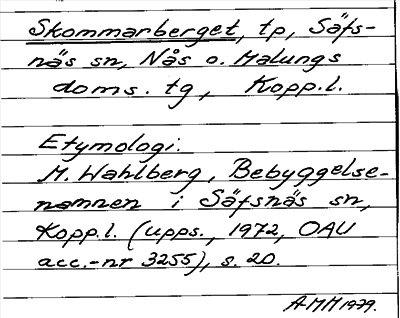 Skommarberget, tp, Säfs-
näs sn, Nås o. Malungs
doms. tg, Kopp.l.
Etymologi:
M. Wahlberg, Bebyggelse-
namnen i Säfsnäs sn,
Kopp.l. (Upps., 1972, OAU
acc.-nr 3255), s. 20.
AMM 1979.